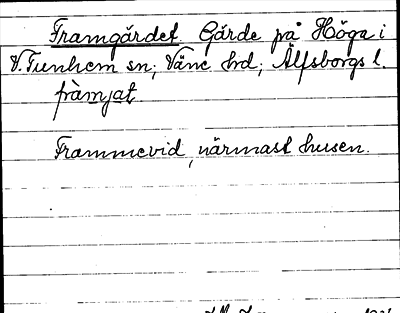 Framgärdet. Gärde på Höga i
V. Tunhem sn; Väne hd; Älfsborgs l.
fràmjat
Frammevid, närmast husen.